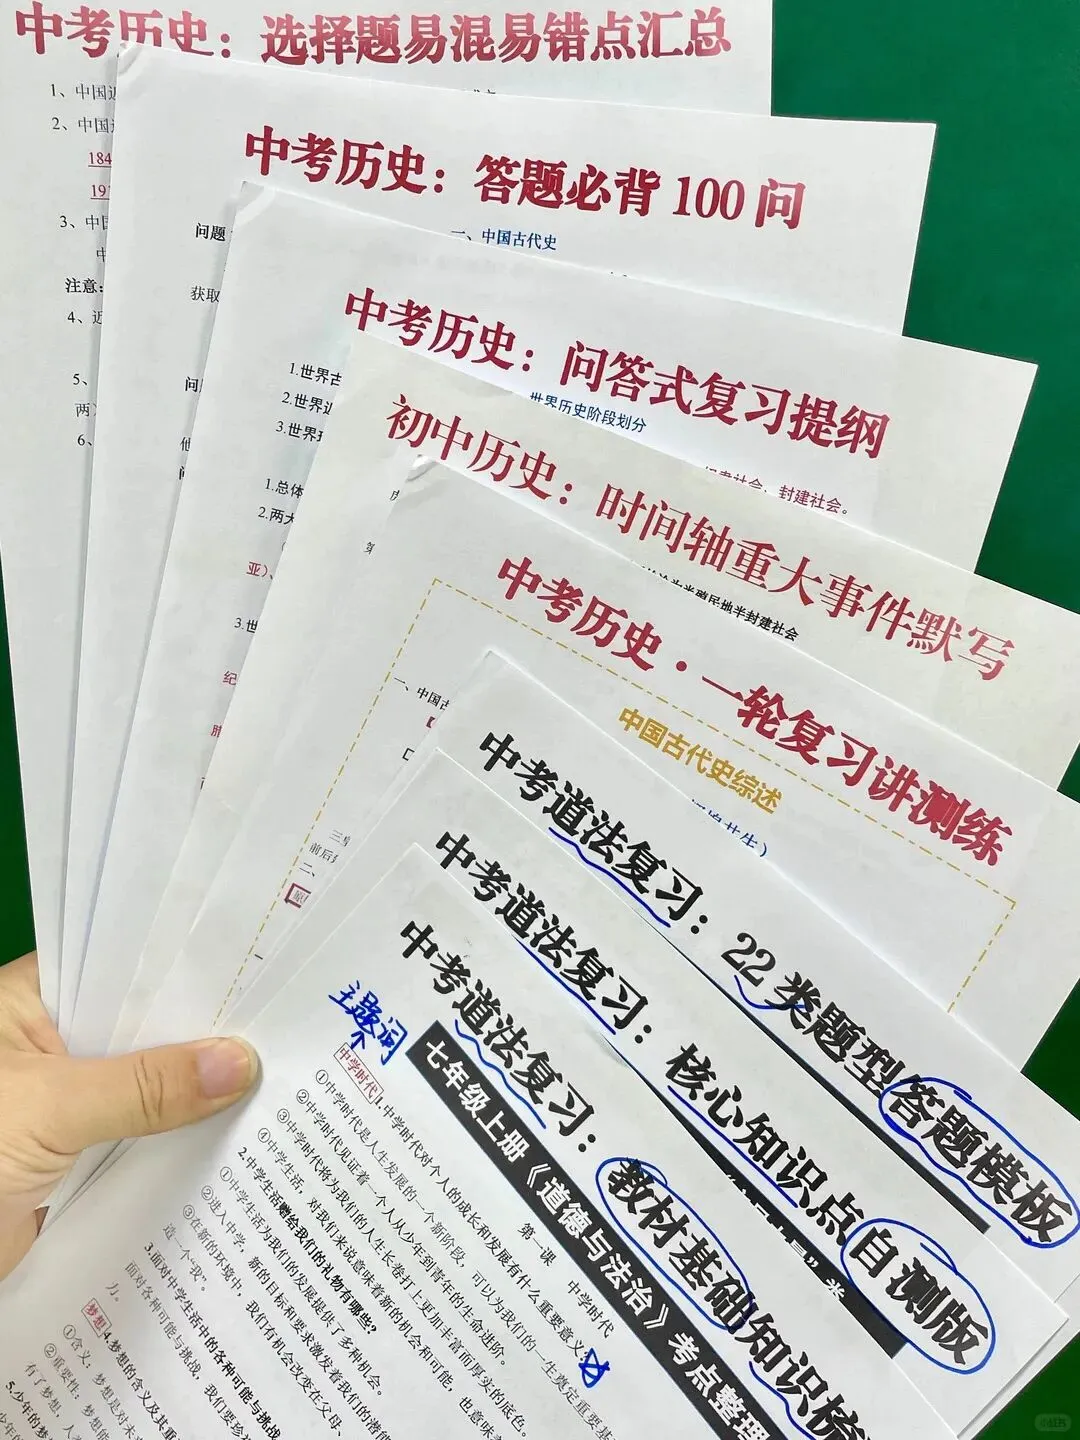 中考历史：选择题易混易错点汇总
1、中国近
2、中国近
184
191
3、中国
中
注意：
4、近
5、
两
6、
中考历史：答题必背100问
一、中国古代史
问题
获取
问
中考历史：问答式复习提纲
世界历史阶段划分
1.世界古
2.世界近
3.世界现
封建社会。
1.总体
2.两大
亚）、
3.世
纪
初中历史：时间轴重大事件默写
半殖民地半封建社会
第
中考历史·一轮复习讲测练
中国古代史综述
一、中国古
三皇
前后
二、
中考道法复习：22类题型答题模板
中考道法复习：核心知识点自测版
中考道法复习：教材基础知识梳
主题词
七年级上册《道德与法治》考点整理
第一课 中学时代
中学时代
1.中学时代对个人的成长和发展有什么重要意义？
①中学时代是人生发展的一个新阶段，可以为我们的一生奠定重要基
②中学时代见证着一个人从少年到青年的生命进阶。
③中学时代将为我们的人生长卷打上更加丰富而厚实的底色。
④中学生活，对我们来说意味着新的机会和可能，也意味
2.中学生活赠给我们的礼物有哪些？
①中学生活为我们的发展提供了多种机会。
②进入中学，新的目标和要求激发着我们的潜能
③在新的环境中，我们有机会改变在父母、
造一个“我”。
3.面对中学生活中的各种可能与挑战
面对各种可能与挑战，我们要珍
力。
梦想
4.梦想的含义及其重
①含义：梦想是对未
②重要性：梦想能
有了梦想，人
5.少年的梦
少年的